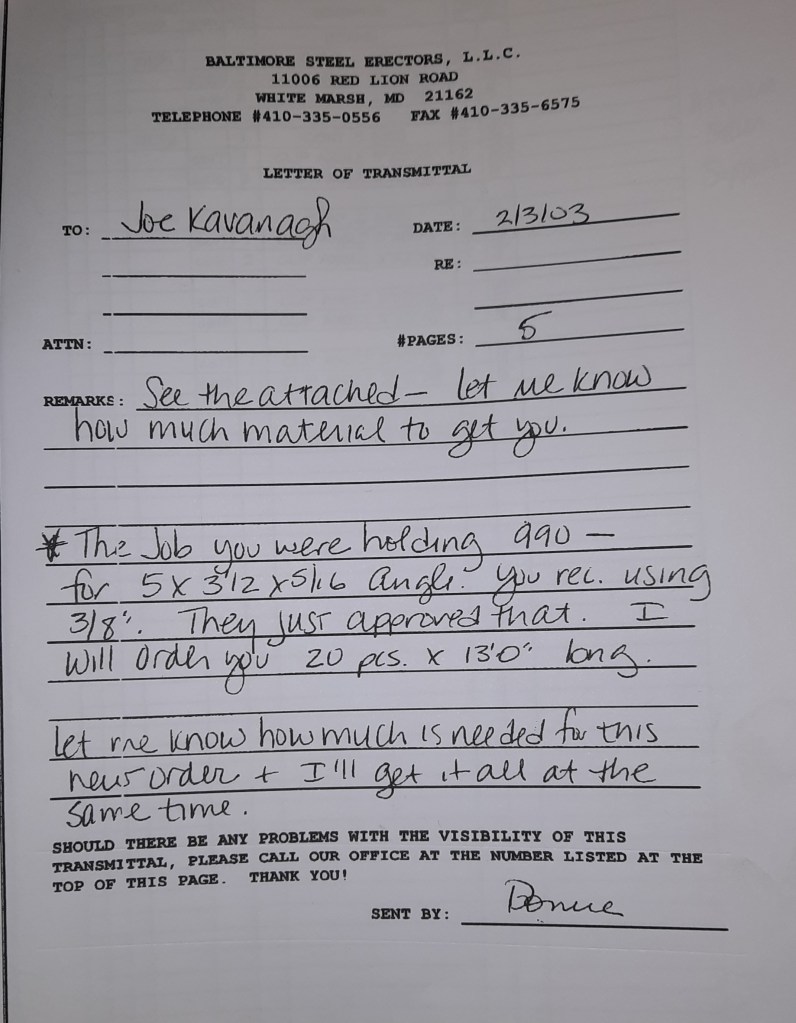 BALTIMORE STEEL ERECTORS, L.L.C.
11006 RED LION ROAD
WHITE MARSH, MD 21162
TELEPHONE #410-335-0556 FAX #410-335-6575
LETTER OF TRANSMITTAL
TO: Joe Kavanagh
DATE: 2/3/03
RE:
ATTN:
#PAGES: 5
REMARKS: See the attached — let me know
how much material to get you.
* The Job you were holding 990 —
for 5 x 3 1/2 x 5/16 angle. You rec. using
3/8". They just approved that. I
will order you 20 pcs. x 13'0" long.
let me know how much is needed for this
new order + I'll get it all at the
same time.
SHOULD THERE BE ANY PROBLEMS WITH THE VISIBILITY OF THIS
TRANSMITTAL, PLEASE CALL OUR OFFICE AT THE NUMBER LISTED AT THE
TOP OF THIS PAGE. THANK YOU!
SENT BY: